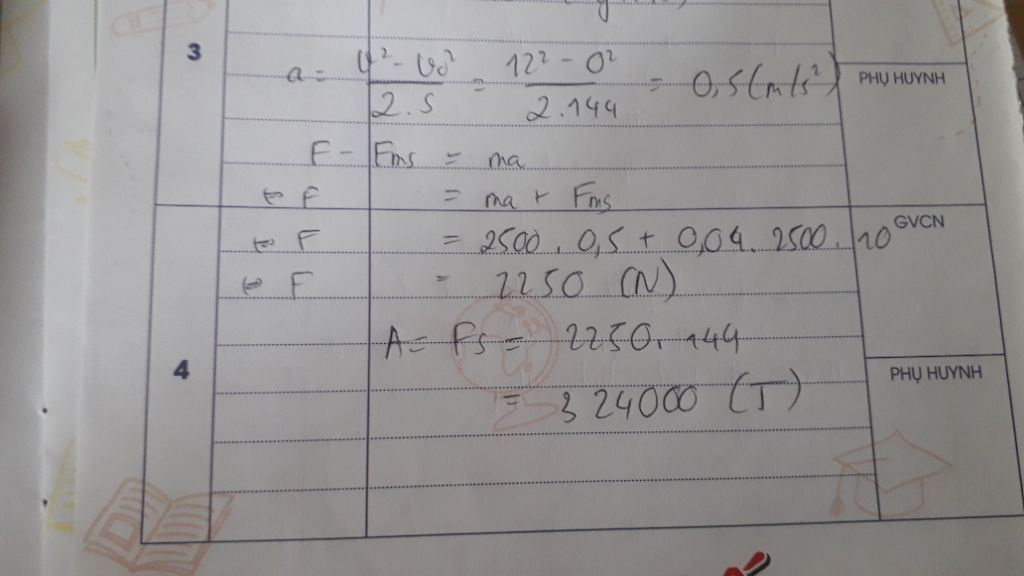 3
a = v² - v₀² / 2.s = 12² - 0² / 2.144 = 0,5 (m/s²)
PHỤ HUYNH
F - Fms = ma
⇔ F = ma + Fms
⇔ F = 2500 . 0,5 + 0,04 . 2500 . 10
GVCN
⇔ F = 2250 (N)
A = Fs = 2250. 144
4
PHỤ HUYNH
= 324000 (J)